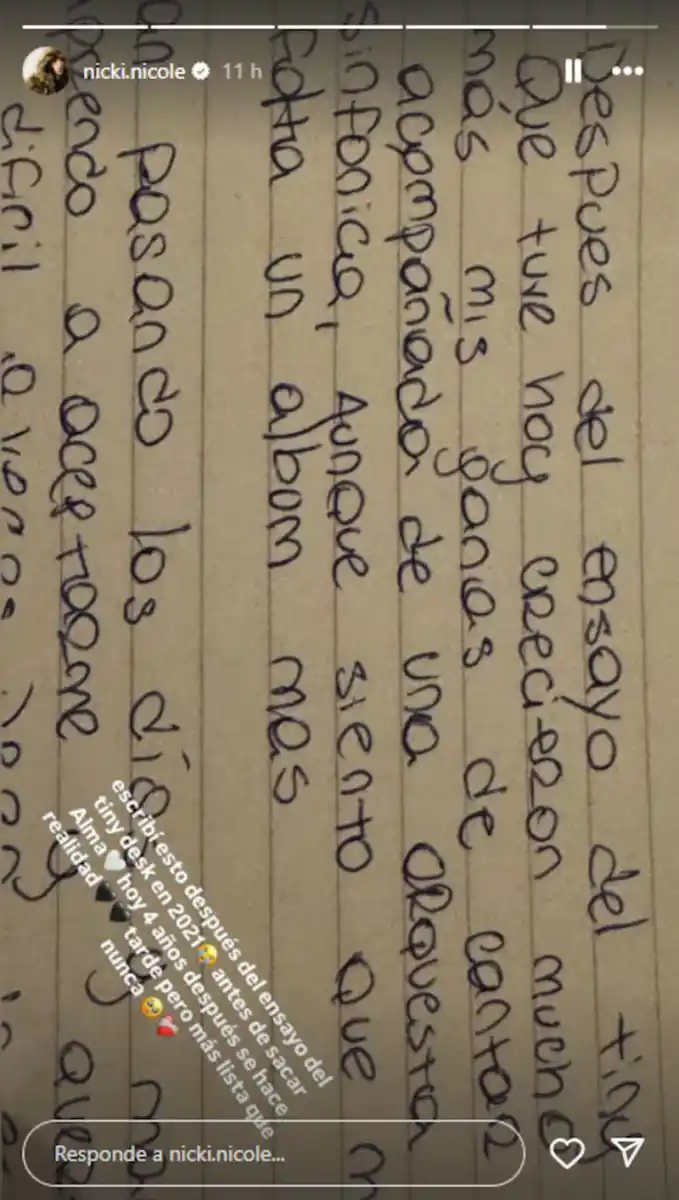 nicki.nicole 11 h
Despues del ensayo del tiny
Que tuve hoy crecieron mucho
más mis ganas de cantar
acompañada de una orquesta
sinfonica, Aunque siento que
falta un album mas
pasando los días
a aceptarme y que
dificil
escribí esto después del ensayo del
tiny desk en 2021😭 antes de sacar
Alma🤍 hoy 4 años después se hace
realidad🖤🖤 tarde pero más lista que
nunca🥹❤️‍🩹
Responde a nicki.nicole...